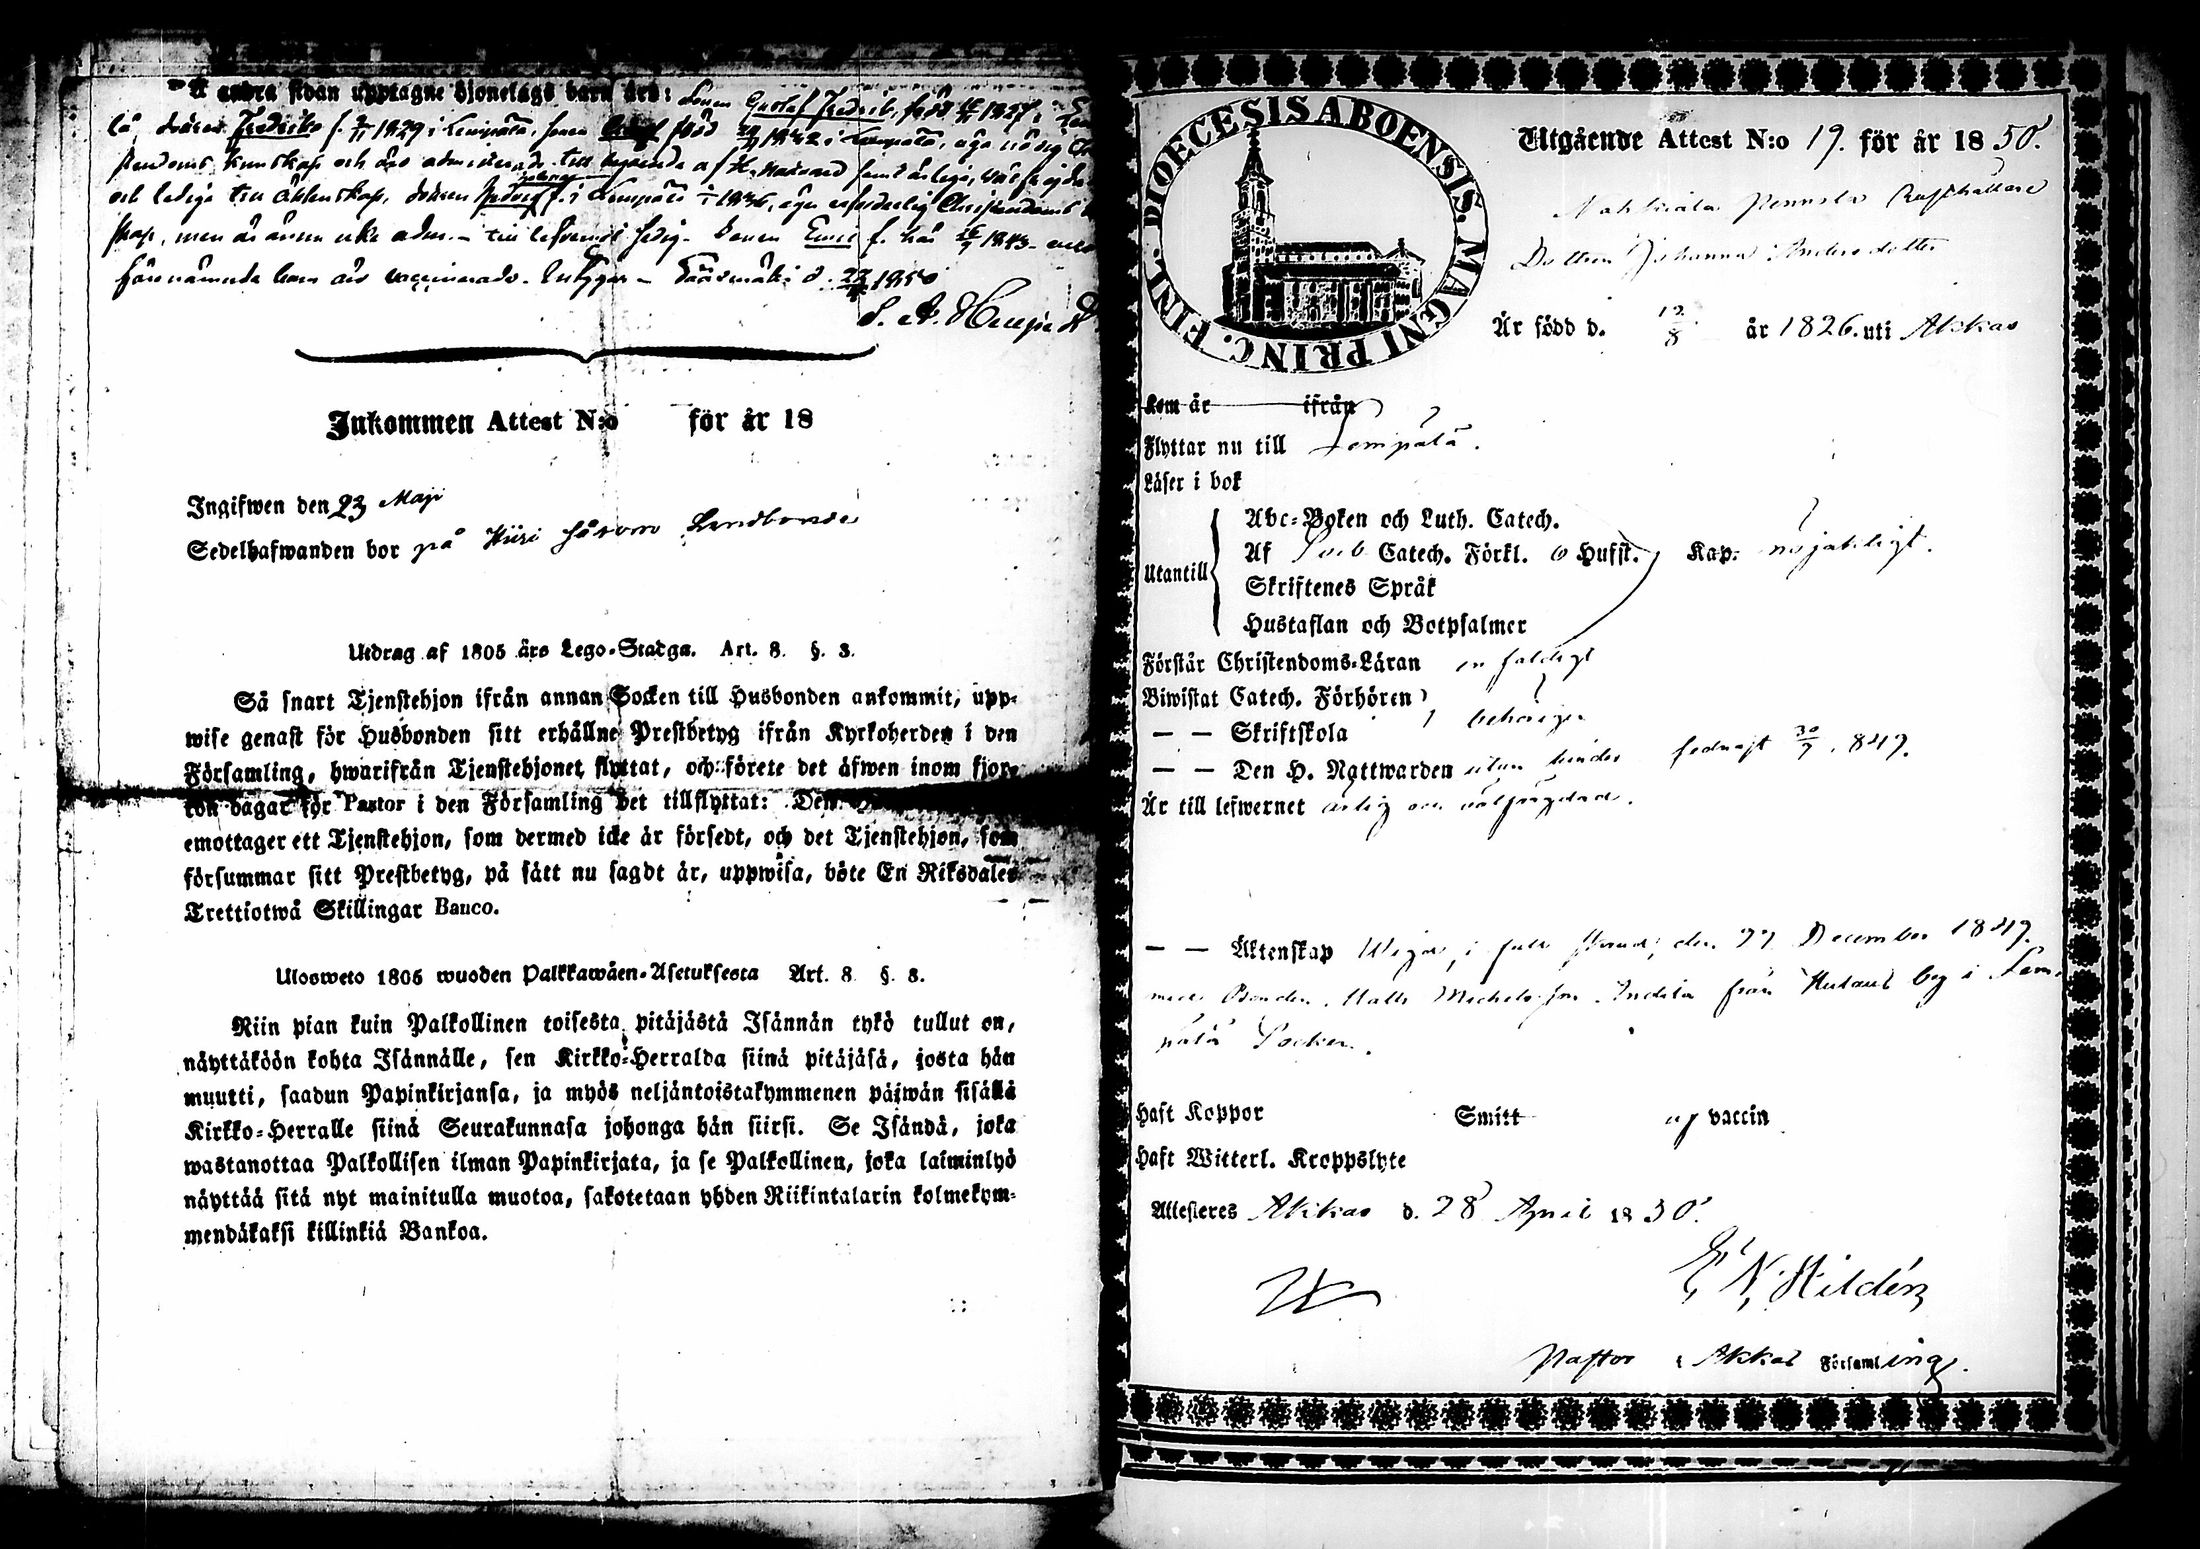 å andra sidan upptagne Hjonelags barn äro: Sonen Gustaf Fredrik, född 1827 i
dottren Fredrika f. 1829 i Lempälä, sonen född 1832 i Lempälä, äga nödig
kunskap och äro admitterade till begående af H. Nattvard samt ärliga, väl frejdade
och lediga till äktenskap, dottren Hedvig f. i Lempälä 1836, äger erforderlig Christendoms
skap, men är ännu icke adm. till lefvernet sedig. Sonen Emil f. här 1843
förenämnde barn äro vaccinerade. Intygar d. 1850
Inkommen Attest N:o för år 18
Ingifwen den 23 Maji
Sedelhafwanden bor på Hiisi Landbonde
Utdrag af 1805 års Lego-Stadga. Art. 8. §. 3.
Så snart Tjenstehjon ifrån annan Socken till Husbonden ankommit, upp-
wise genast för Husbonden sitt erhållne Prestbetyg ifrån Kyrkoherden i den
Församling, hwarifrån Tjenstehjonet flyttat, och förete det äfwen inom fjor-
ton dagar för Pastor i den Församling det tillflyttat: Den
emottager ett Tjenstehjon, som dermed icke är försedt, och det Tjenstehjon, som
försummar sitt Prestbetyg, på sätt nu sagdt är, uppwisa, böte En Riksdaler
Trettiotwå Skillingar Banco.
Ulosweto 1805 wuoden Palkkawäen-Asetuksesta Art. 8 §. 3.
Niin pian kuin Palkollinen toisesta pitäjästä Isännän tykö tullut on,
näyttäköön kohta Isännälle, sen Kirkko-Herralda siinä pitäjäsä, josta hän
muutti, saadun Papinkirjansa, ja myös neljäntoistakymmenen päiwän sisällä
Kirkko-Herralle siinä Seurakunnasa johonga hän siirsi. Se Isändä, joka
wastanottaa Palkollisen ilman Papinkirjata, ja se Palkollinen, joka laiminlyö
näyttää sitä nyt mainitulla muotoa, sakotetaan yhden Riikintalarin kolmekym-
mendäkaksi killinkiä Bankoa.
DIOECESIS ABOENSIS. MAGNI PRINC. FINL.
Utgående Attest N:o 19. för år 1850.
Rusthållare
Dottren Johanna Andersdotter
Är född d. 12/8 år 1826. uti Akkas
Kom år ifrån
Flyttar nu till Lempälä.
Läser i bok
Abc-Boken och Luth. Catech.
Af Sveb Catech. Förkl. o Husst. Kap. nöjaktigt.
Utantill
Skriftenes Språk
Hustaflan och Botpsalmer
Förstår Christendoms-Läran enfaldigt
Biwistat Catech. Förhören
— — Skriftskola behörigen
— — Den H. Nattwarden utan hinder sednast 30/9 1849.
Är till lefwernet ärlig och välfrägdad.
— — Äktenskap Wigd, i den 27 December 1849.
med Bonden Matts Michelsson Indila från by i Lem-
pälä Socken.
Haft Koppor Smitt af vaccin
Haft Witterl. Kroppslyte
Attesteres Akkas d. 28 April 1850.
E. N. Hildén
Pastor i Akkas Församling.